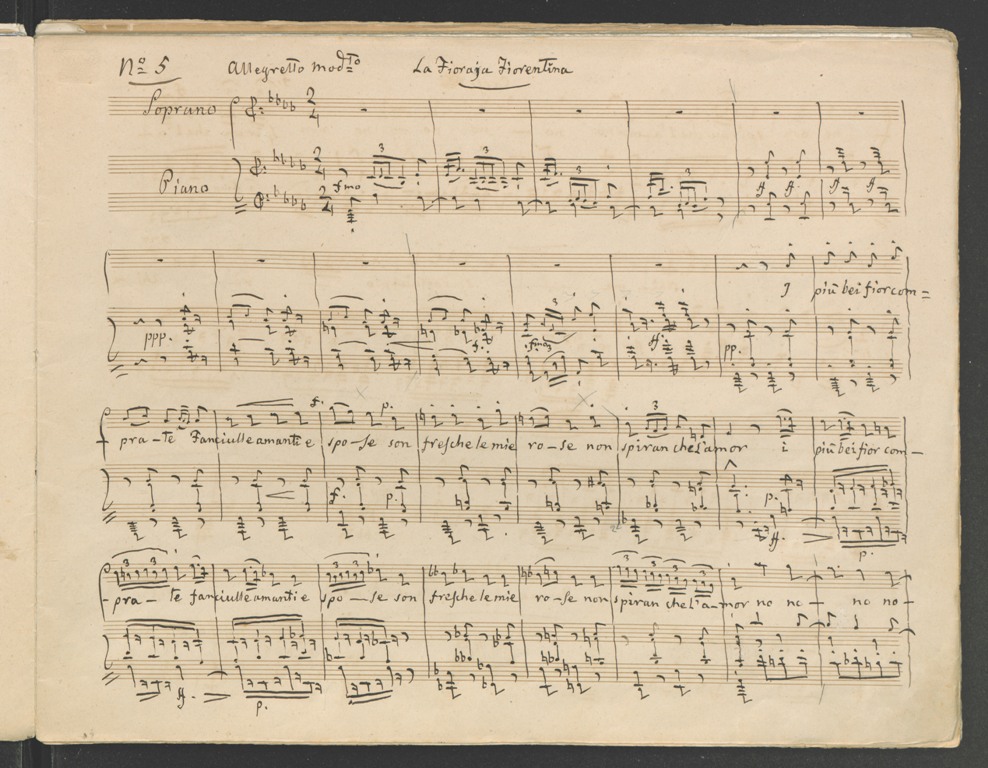 No 5 Allegretto modto La Fioraja Fiorentina
Soprano
Piano
fmo
ff ff
ff ff
I più bei fior com=
ppp.
f.
fmo
ff.
pp.
f. p.
pra-te Fanciulle amanti e spo-se son fresche le mie ro-se non spiran che l'amor i più bei fior com-
f. p. p.
ff. p.
-pra-te fanciulle amanti e spo-se son fresche le mie ro-se non spiran che l'a-mor no no- no no-
ff. p.